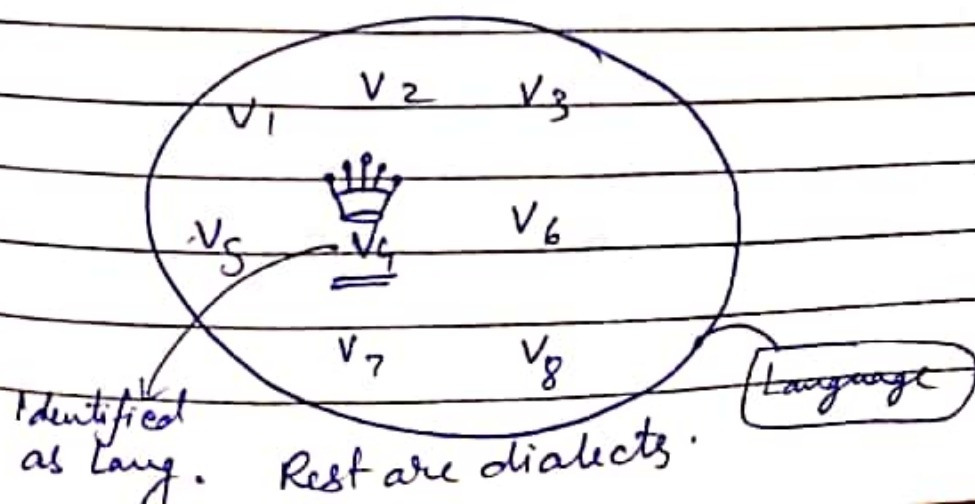 V1 V2 V3
V5 V4 V6
V7 V8
Language
Identified
as Lang. Rest are dialects.